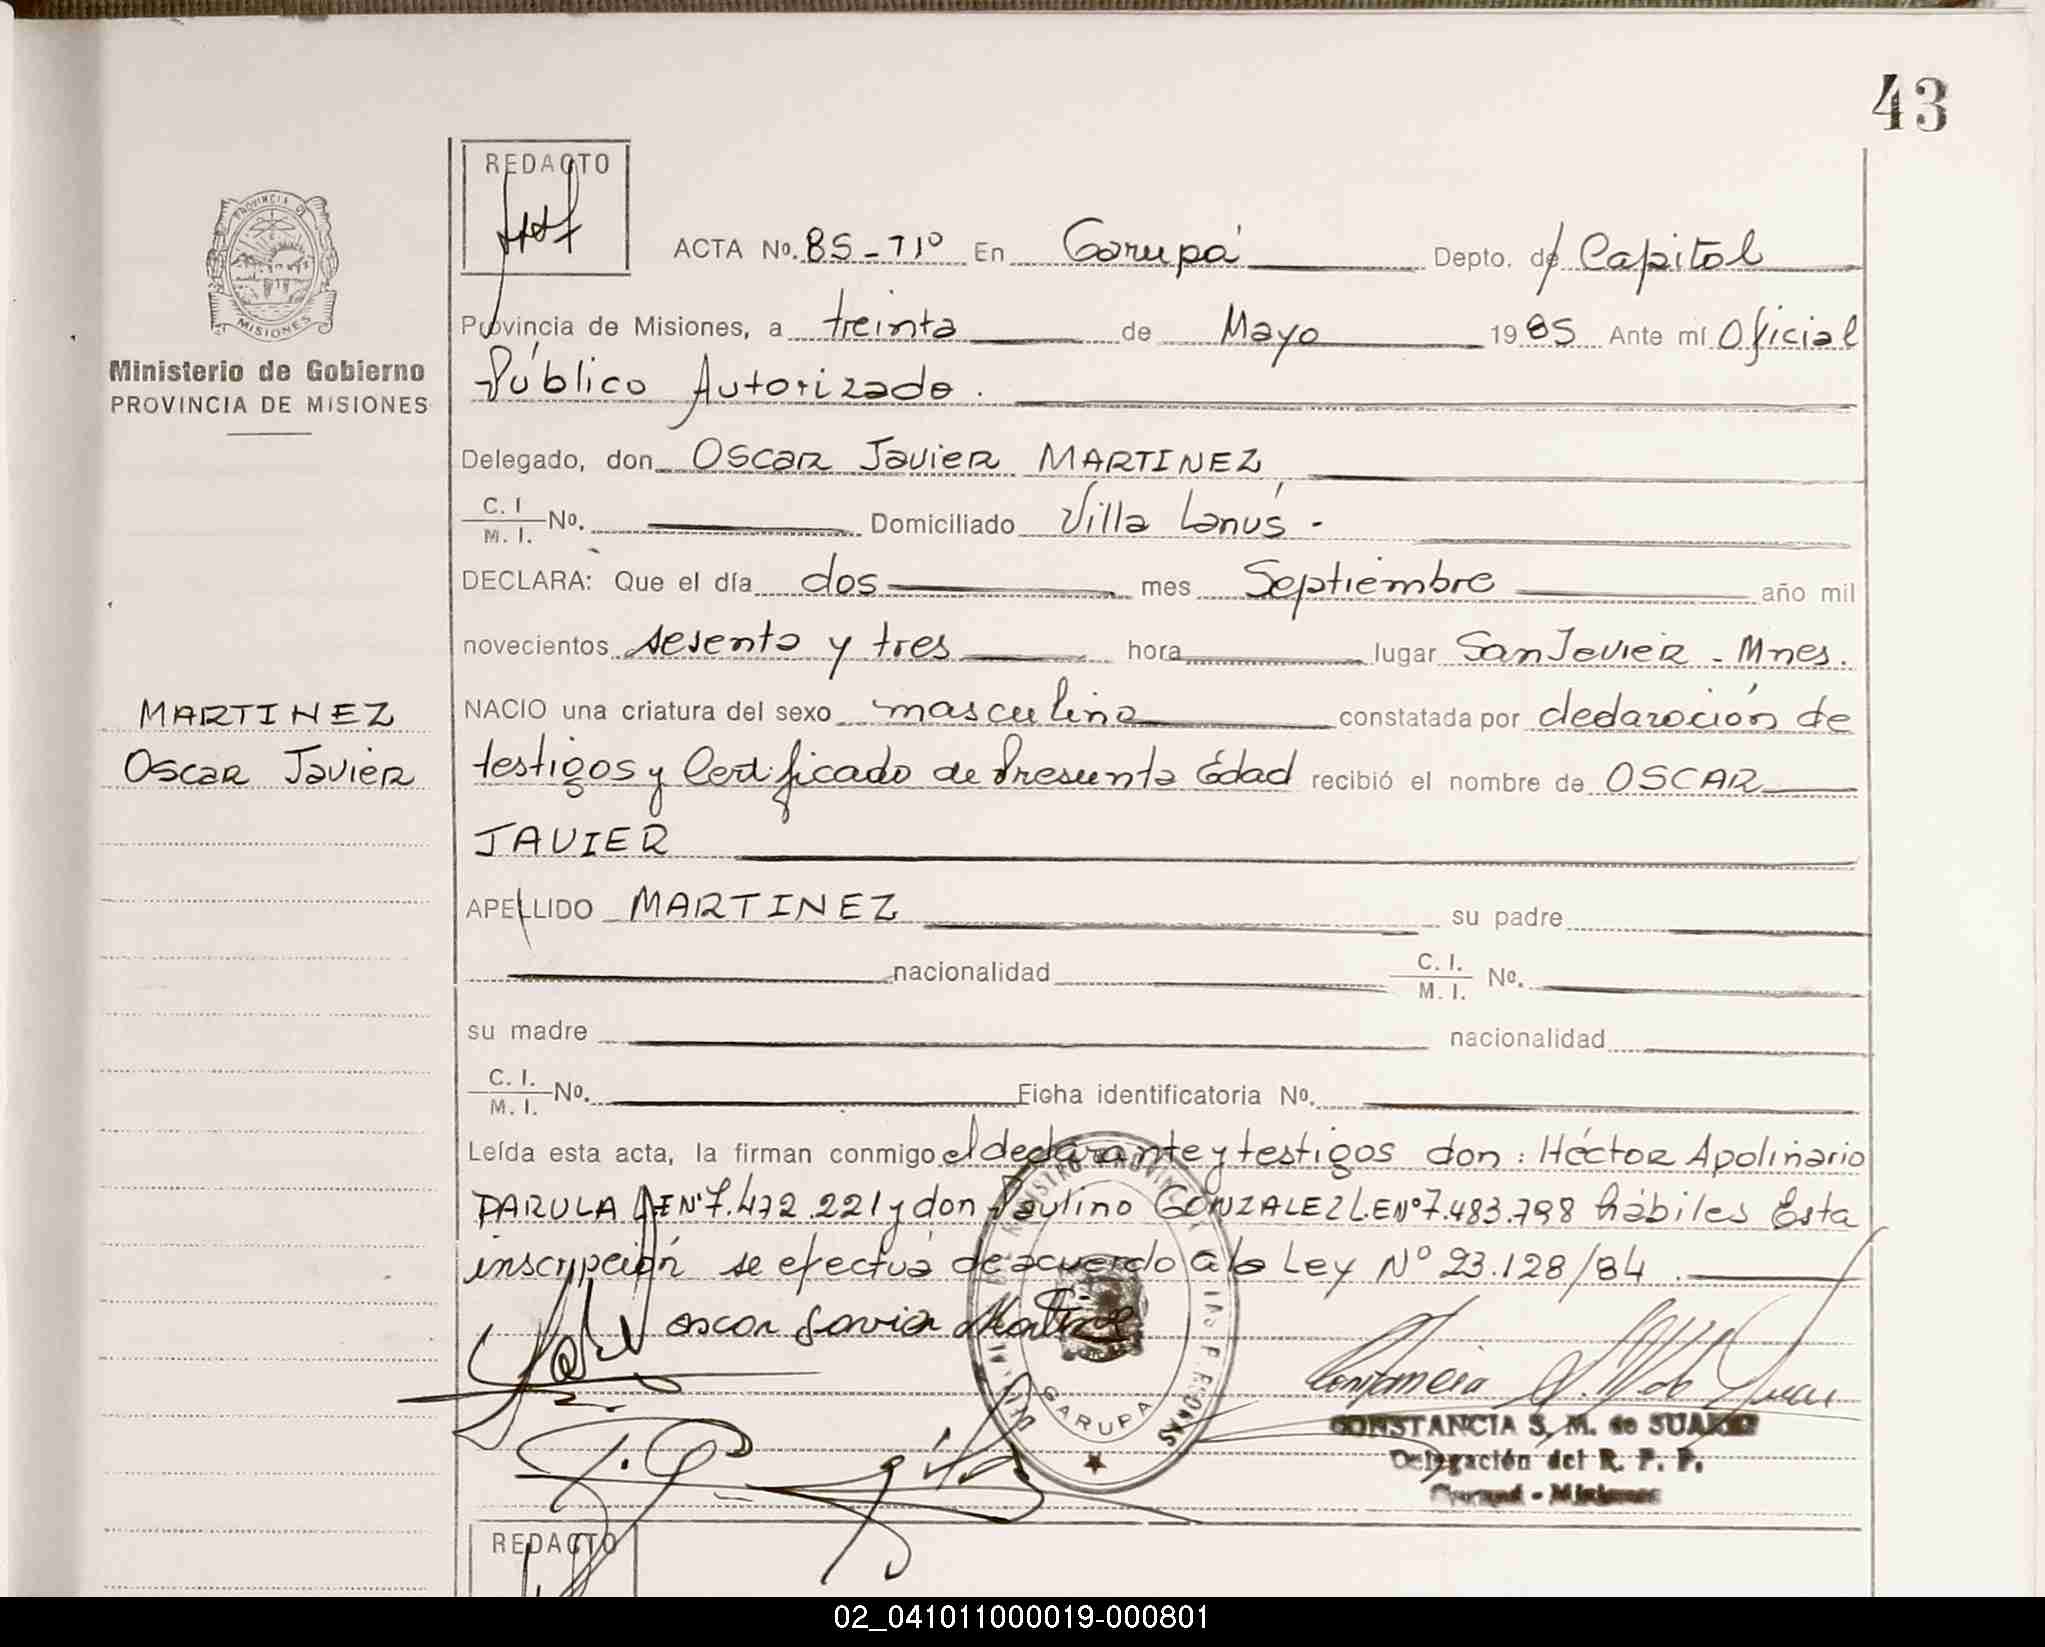 43
REDACTO
ACTA No. 85-TIº En Garupá Depto. de Capital
Provincia de Misiones, a treinta de Mayo 1985 Ante mí Oficial
Público Autorizado.
PROVINCIA DE
MISIONES
Ministerio de Gobierno
PROVINCIA DE MISIONES
Delegado, don OSCAR JAVIER MARTINEZ
C. I
M. I. No. Domiciliado Villa Lanús.
DECLARA: Que el día dos mes Septiembre año mil
novecientos sesenta y tres hora lugar San Javier - Mnes.
MARTINEZ
Oscar Javier
NACIO una criatura del sexo masculino constatada por declaración de
testigos y Certificado de Presunta Edad recibió el nombre de OSCAR
JAVIER
APELLIDO MARTINEZ su padre
nacionalidad C. I.
M. I. No.
su madre nacionalidad
C. I.
M. I. No. Ficha identificatoria No.
Leída esta acta, la firman conmigo el declarante y testigos don: Héctor Apolinario
PARULA L.E Nº 7.472.221 y don Paulino GONZALEZ L.E Nº 7.483.798 hábiles Esta
inscripción se efectúa de acuerdo a la Ley Nº 23.128/84.
Oscar Javier Martinez
GARUPA
CONSTANCIA S. M. de SUAREZ
Delegación del R. P. P.
Garupá - Misiones
REDACTO
02_041011000019-000801